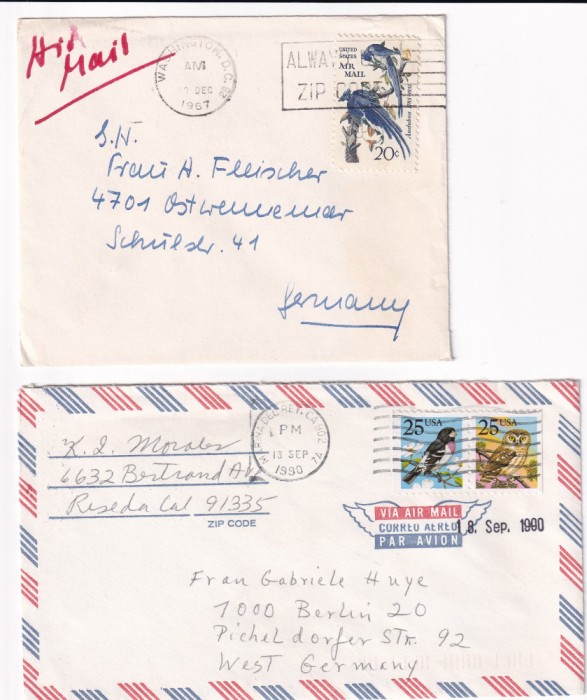 Air
Mail
WASHINGTON, D.C.
AM
DEC
1967
ALWAYS
ZIP CODE
UNITED
STATES
AIR
MAIL
20c
S.H.
Frau A. Fleischer
4701 Ostwennemar
Schulstr. 41
Germany
K. I. Morales
6632 Bertrand Av
Reseda Cal 91335
ZIP CODE
PM
13 SEP
1990
25 USA
25 USA
VIA AIR MAIL
CORREO AEREO
PAR AVION
18. Sep. 1990
Frau Gabriele Huye
1000 Berlin 20
Picheldorfer Str. 92
West Germany